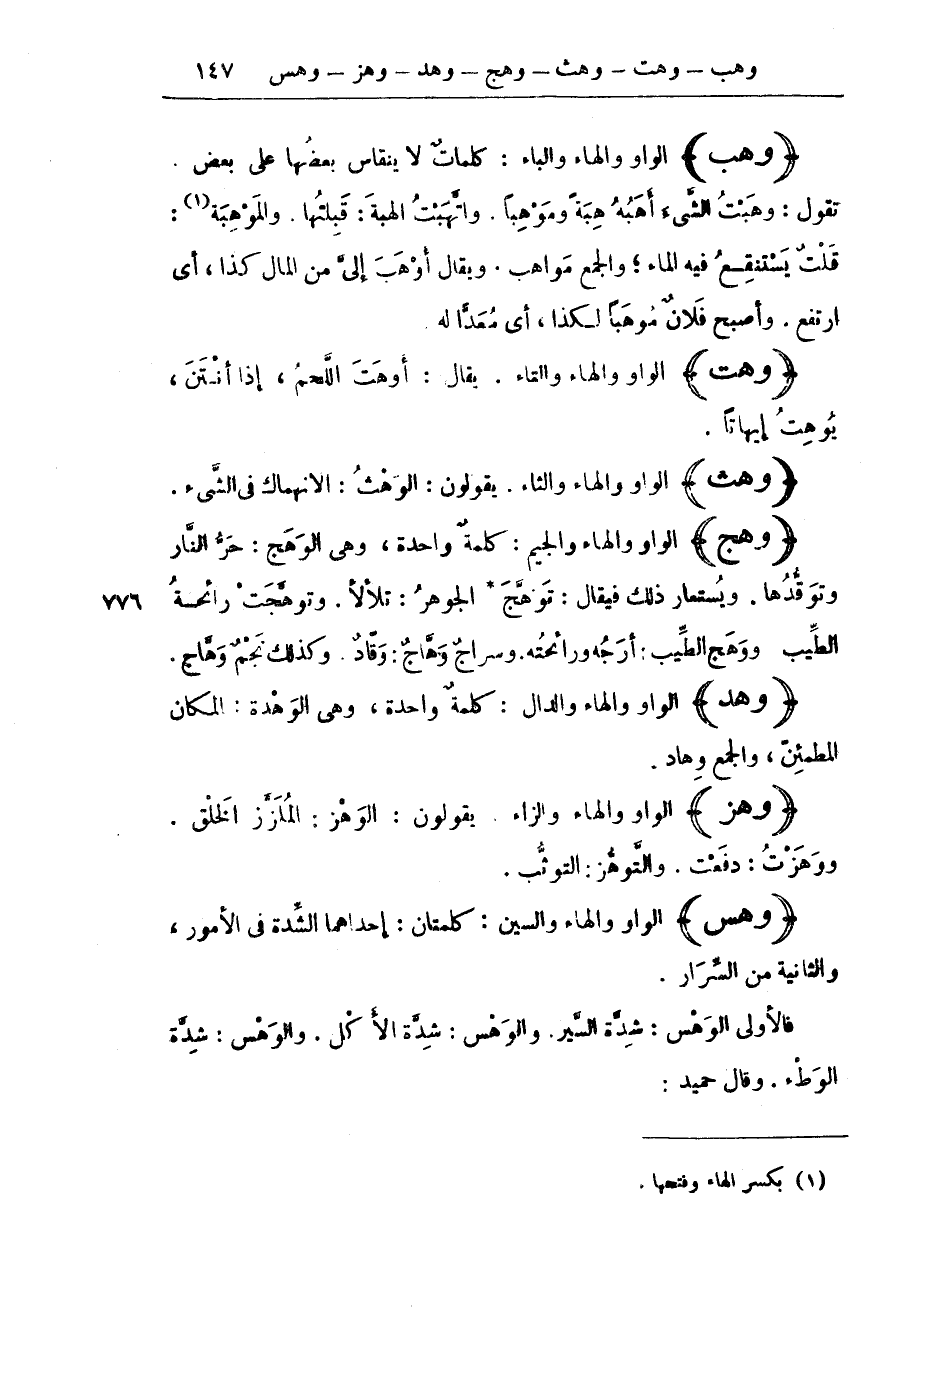 وهب – وهت – وهث – وهج – وهد – وهز – وهس ١٤٧
﴿ وهب ﴾ الواو والهاء والباء : كلماتٌ لا ينقاس بعضُها على بعض .
تقول : وهَبْتُ الشَّىء أَهَبُهُ هِبَةً ومَوْهِباً . واتَّهَبْتُ الهبةَ : قَبِلتُها . والمَوْهِبَة(١) :
قَلْتٌ يَسْتنقِعُ فيه الماء ؛ والجمع مَواهب . ويقال أوْهَبَ إلىَّ من المال كذا ، أى
ارتفع . وأصبح فلانٌ مُوهَباً لكذا ، أى مُعَدًّا له
﴿ وهت ﴾ الواو والهاء والتاء . يقال : أَوهَتَ اللَّحمُ ، إذا أنْتَنَ ،
يُوهِتُ إيهاتاً .
﴿ وهث ﴾ الواو والهاء والثاء . يقولون : الوَهْثُ : الانهماك فى الشَّىء .
﴿ وهج ﴾ الواو والهاء والجيم : كلمةٌ واحدة ، وهى الوَهَج : حَرُّ النَّار
وتوَقُّدُها . ويُستعار ذلك فيقال : تَوَهَّجَ * الجوهرُ : تلألأ . وتوهَّجَتْ رائحةُ ٧٧٦
الطِّيب ووَهَج الطِّيب : أرَجُه ورائحتُه . وسراجٌ وَهَّاجٌ : وَقّادٌ . وكذلك نَجْمٌ وَهَّاج .
﴿ وهد ﴾ الواو والهاء والدال : كلمةٌ واحدة ، وهى الوَهْدة : المكان
المطمئِنّ ، والجمع وِهاد .
﴿ وهز ﴾ الواو والهاء والزاء . يقولون : الوَهْز : المُلَزَّز الخَلْق .
ووَهَزْتُ : دفَعْت . والتَّوهُّز : التوثُّب .
﴿ وهس ﴾ الواو والهاء والسين : كلمتان : إحداهما الشِّدة فى الأمور ،
والثانية من السِّرَار .
فالأولى الوَهْس : شِدَّة السَّير . والوَهْس : شِدَّة الأَكْل . والوَهْس : شِدَّة
الوَطْء . وقال حميد :
(١) بكسر الهاء وفتحها .